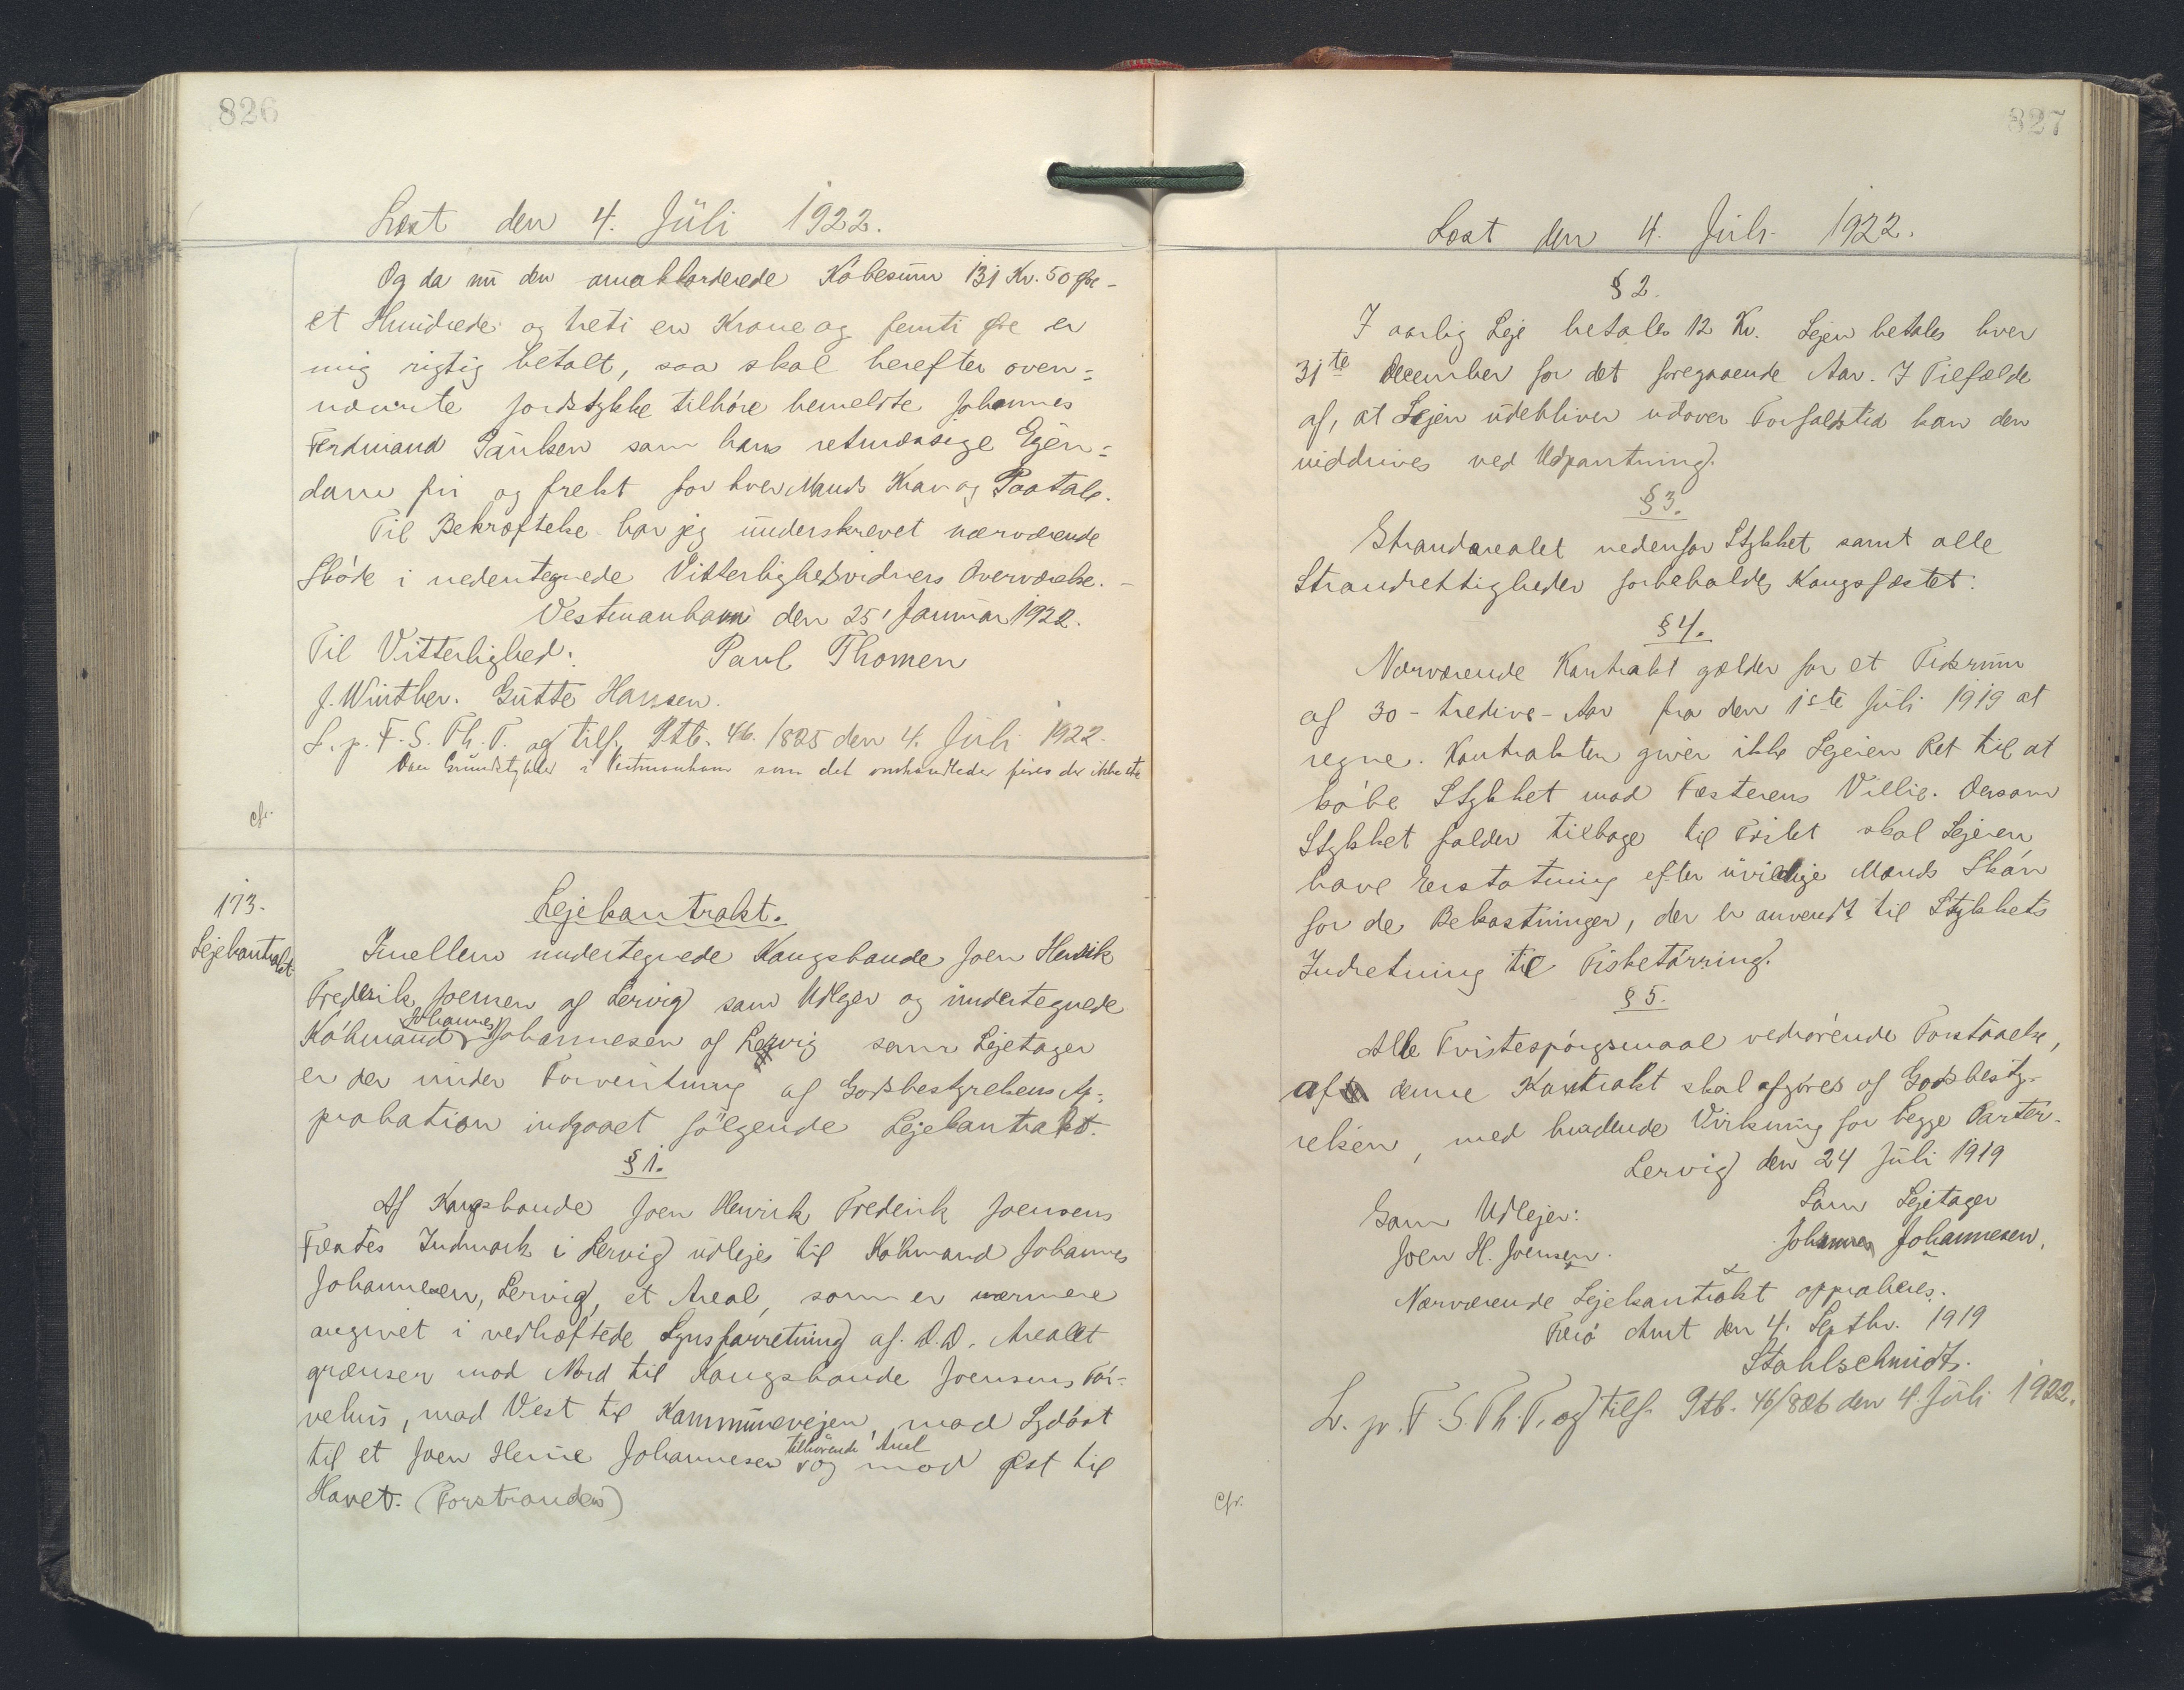 826
Læst den 4. Jüli 1922.
Og da nü den omakkorderede Købesüm 131 Kr. 50 Øre -
et Hündrede og treti en Krone og femti Øre er
mig rigtig betalt, saa skal herefter oven=
nævnte Jordstykke tilhøre bemeldte Johannes
Ferdinand Paülsen som hans retmæssige Ejen=
dom fri og frelst for hver Mands Krav og Paatale.
Til Bekræftelse har jeg ünderskrevet nærværende
Skøde i nedentegnede Vitterlighedsvidners Overværelse. -
Vestmanhavn den 25' Januar 1922.
Til Vitterlighed:
Paul Thomsen
J. Winther. Gütte Hanssen.
L. p. F. S. Th. T. og tilf. Ptb. 46/825 den 4. Jüli 1922.
Over Gründstykker i Vestmanhavn som det omhandlede føres der ikke
cfr.
173.
Lejekontrakt.
Lejekontrakt.
Imellem undertegnede Kongsbonde Joen Henrik
Frederik Joensen af Lervig som Udlejer og ündertegnede
Købmand Johannes Johannesen af Lervig som Lejetager
er der ünder Forventning af Godsbestyrelsens Ap=
probation indgaaet følgende Lejekontrakt.
§ 1.
Af Kongsbonde Joen Henrik Frederik Joensens
Fæstes Indmark i Lervig üdlejes til Købmand Johannes
Johannesen, Lervig, et Areal, som er nærmere
angivet i vedhæftede Synsforretning af. D.D. Arealet
grænser mod Nord til Kongsbonde Joensens Tør-
vehüs, mod Vest til Kommünevejen, mod Sydøst
til et Joen Heine Johannesen tilhørende Areal og mod Øst til
Havet. (Forstranden)
827
Læst den 4. Juli 1922.
§ 2.
I aarlig Leje betales 12 Kr. Lejen betales hver
31te December for det foregaaende Aar. I Tilfælde
af, at Lejen üdebliver udover Forfaldstid kan den
inddrives ved Udpantning.
§ 3.
Strandarealet nedenfor Stykket samt alle
Strandrettigheder forbeholdes Kongsfæstet.
§ 4.
Nærværende Kontrakt gælder for et Tidsrüm
af 30 - tredive - Aar fra den 1ste Jüli 1919 at
regne. Kontrakten giver ikke Lejeren Ret til at
købe Stykket mod Fæsterens Villie. Dersom
Stykket falder tilbage til Fæstet skal Lejeren
have Erstatning efter üvildige Mænds Skøn
for de Bekostninger, der er anvendt til Stykkets
Indretning til Fisketørring.
§ 5.
Alle Tvistespørgsmaal vedrørende Forstaaelse,
af denne Kontrakt skal afgøres af Godsbesty-
relsen, med bindende Virkning for begge Parter.
Lervig den 24 Jüli 1919
Som Udlejer:
Som Lejetager
Joen H. Joensen.
Johannes Johannesen.
Nærværende Lejekontrakt approberes.
Færø Amt den 4. Septbr. 1919
Stahlschmidt.
L. p. F. S. Th. T. og tilf. Ptb. 46/826 den 4. Jüli 1922.
Cfr.